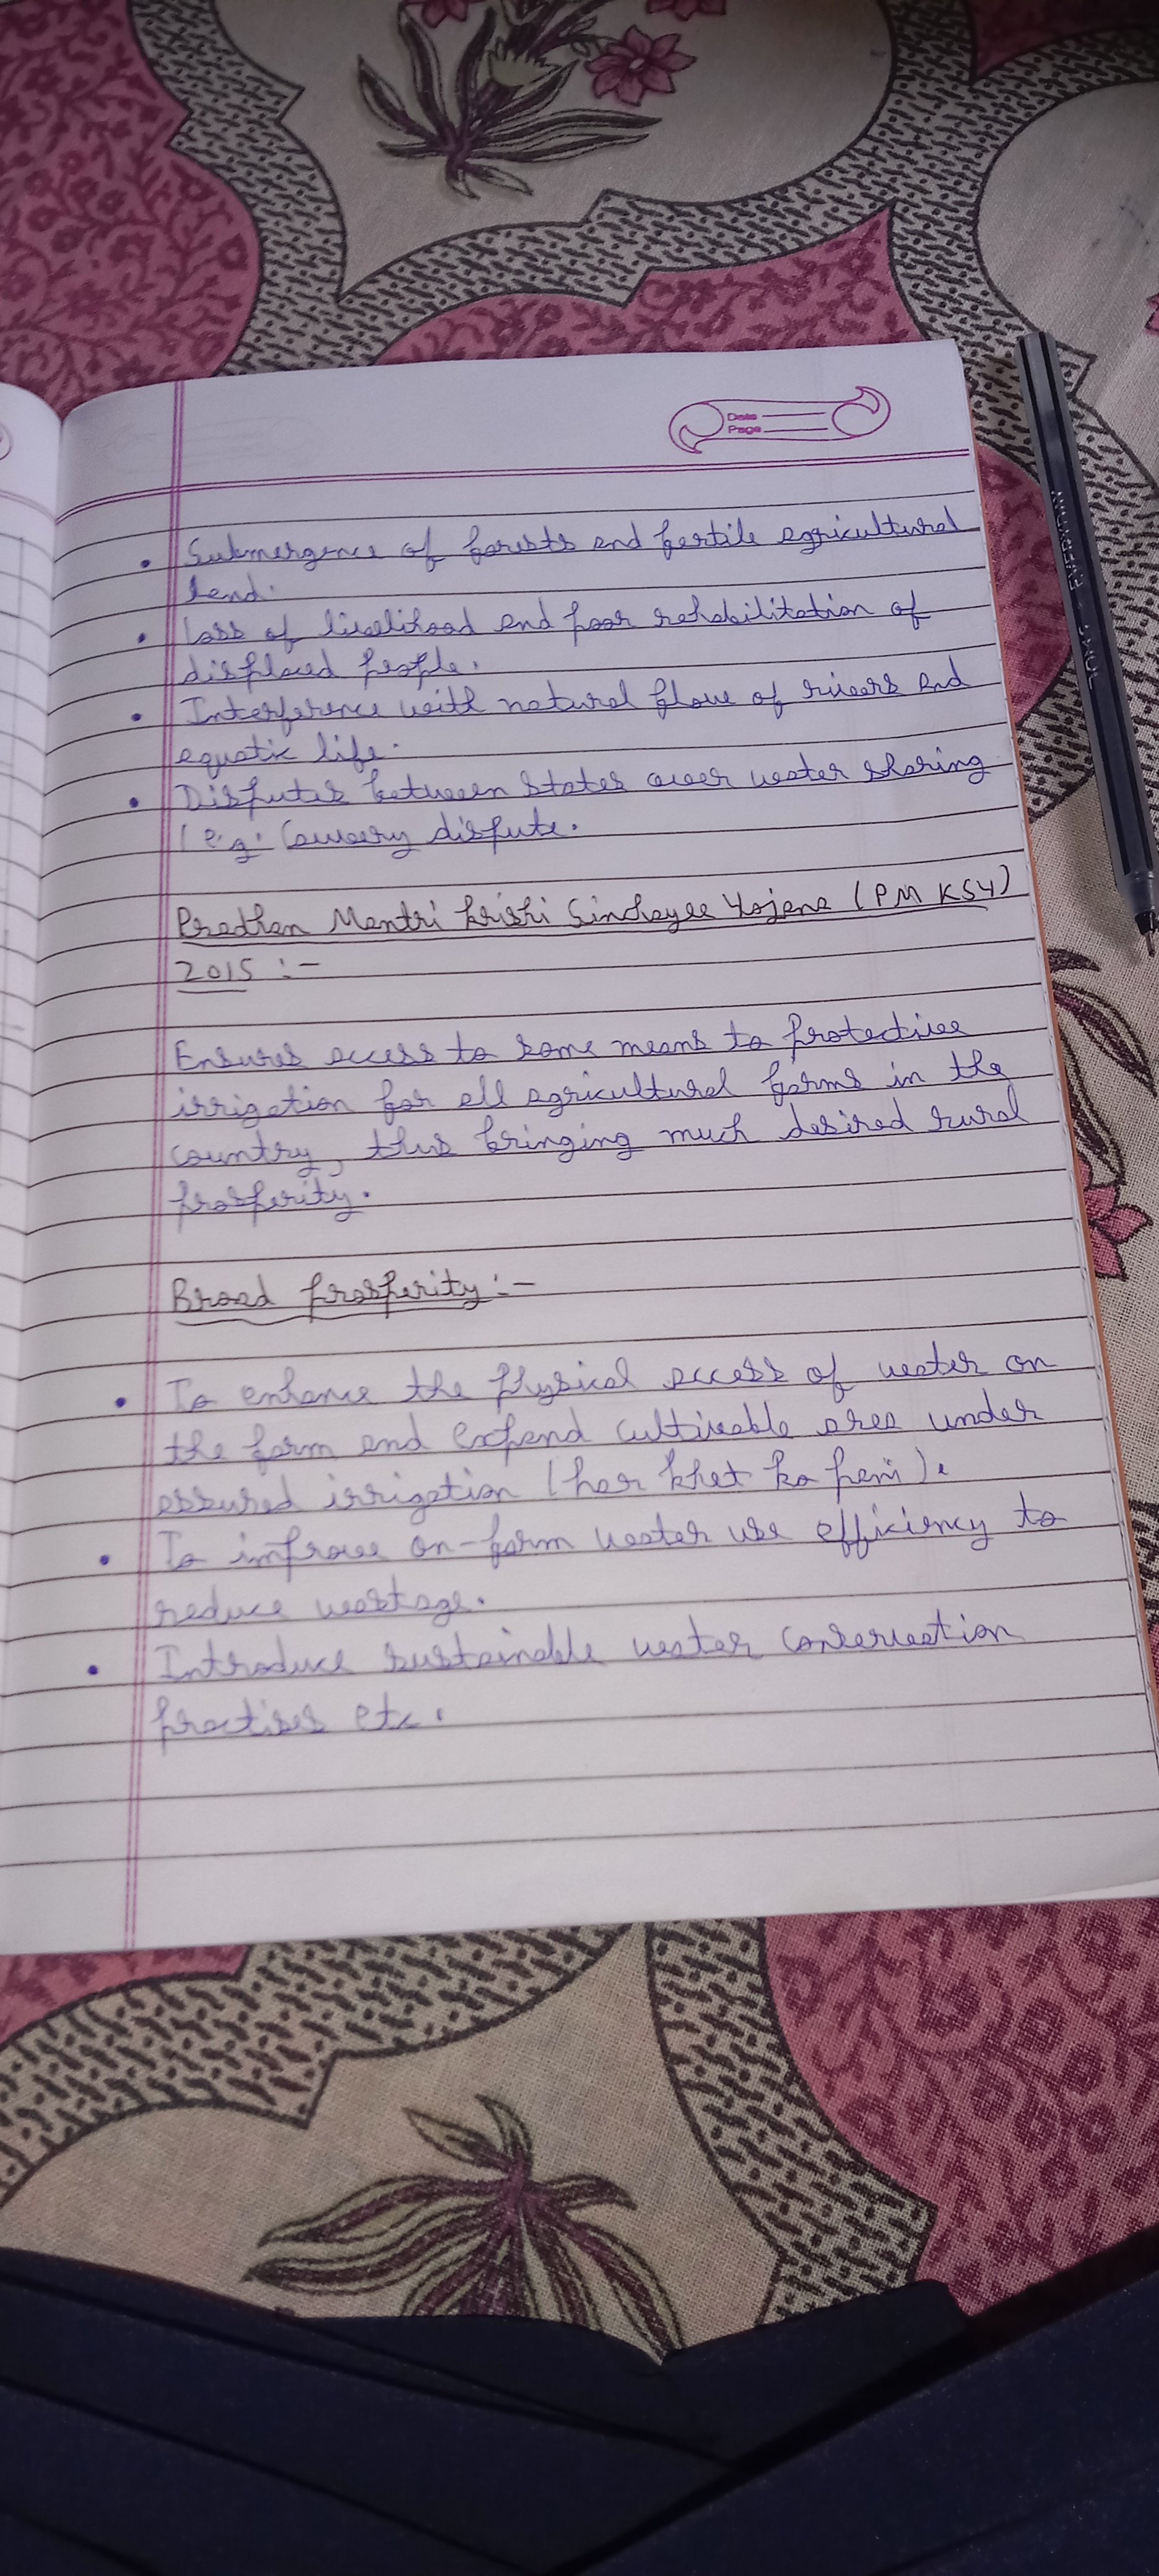 Date
Page
• Submergence of forests and fertile agricultural
land.
• Loss of livelihood and poor rehabilitation of
displaced people.
• Interference with natural flow of rivers and
aquatic life.
• Disputes between States over water sharing
(e.g. Cauvery dispute.
Pradhan Mantri Krishi Sinchayee Yojana (PM KSY)
2015 :-
Ensures access to some means to protective
irrigation for all agricultural farms in the
country, thus bringing much desired rural
prosperity.
Broad prosperity :-
• To enhance the physical access of water on
the farm and expand cultivable area under
assured irrigation (har khet ko pani).
• To improve on-farm water use efficiency to
reduce wastage.
• Introduce sustainable water conservation
practises etc.